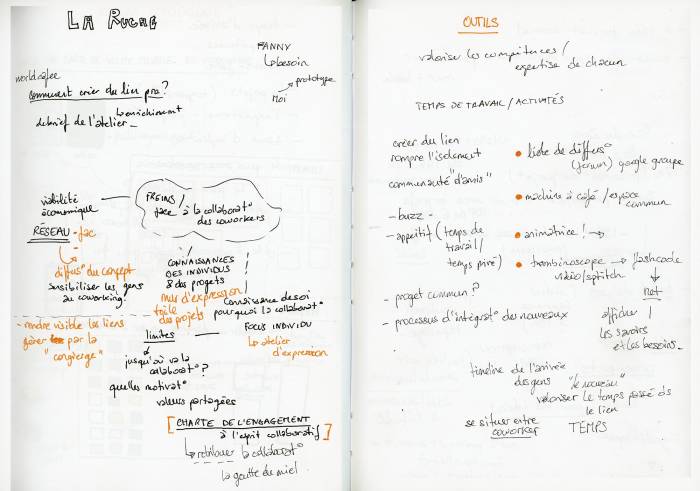 LA RUCHE
FANNY
↳ besoin
prototype
moi
world cafee
comment créer du lien pro?
↳ enrichissement
debrief de l'atelier_
viabilité
économique
FREINS /
face à la collaborat°
des coworkers
RÉSEAU - fac
diffus° du concept
sensibiliser les gens
au coworking.
CONNAISSANCES
DES INDIVIDUS
& des projets
mur d'expression
toile
des projets
Connaissance de soi
pourquoi la collaborat°
FOCUS INDIVIDU
↳ atelier
d'expression
- rendre visible les liens
gérer par la
"concierge"
limites
jusqu'où va la
collaborat°?
quelles motivat°
valeurs partagées
[CHARTE DE L'ENGAGEMENT
à l'esprit collaboratif]
↳ rétribuer la collaborat°
la goutte de miel
OUTILS
valoriser les compétences /
expertise de chacun
TEMPS DE TRAVAIL / ACTIVITÉS
créer du lien
rompre l'isolement
communauté "d'amis"
- buzz -
- apéritif (temps de
travail /
temps privé)
- projet commun?
- processus d'intégrat° des nouveaux
• liste de diffus°
(forum) google groupe
• machine à café / espace
commun
• animatrice! →
• trombinoscope → flashcode
vidéo/
net
afficher
les savoirs
et les besoins.
timeline de l'arrivée
des gens "le nouveau"
valoriser le temps passé ds
le lien
se situer entre
coworker
TEMPS